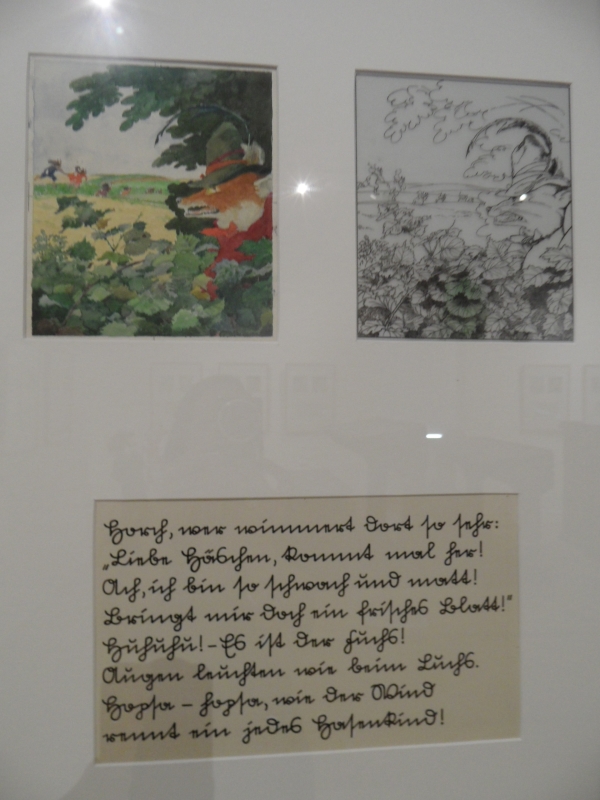 Horch, wer wimmert dort so sehr:
„Liebe Häschen, kommt mal her!
Ach, ich bin so schwach und matt!
Bringt mir doch ein frisches Blatt!"
Huhuhu! - Es ist der Fuchs!
Augen leuchten wie beim Luchs.
Hopsa - hopsa, wie der Wind
rennt ein jedes Hasenkind!